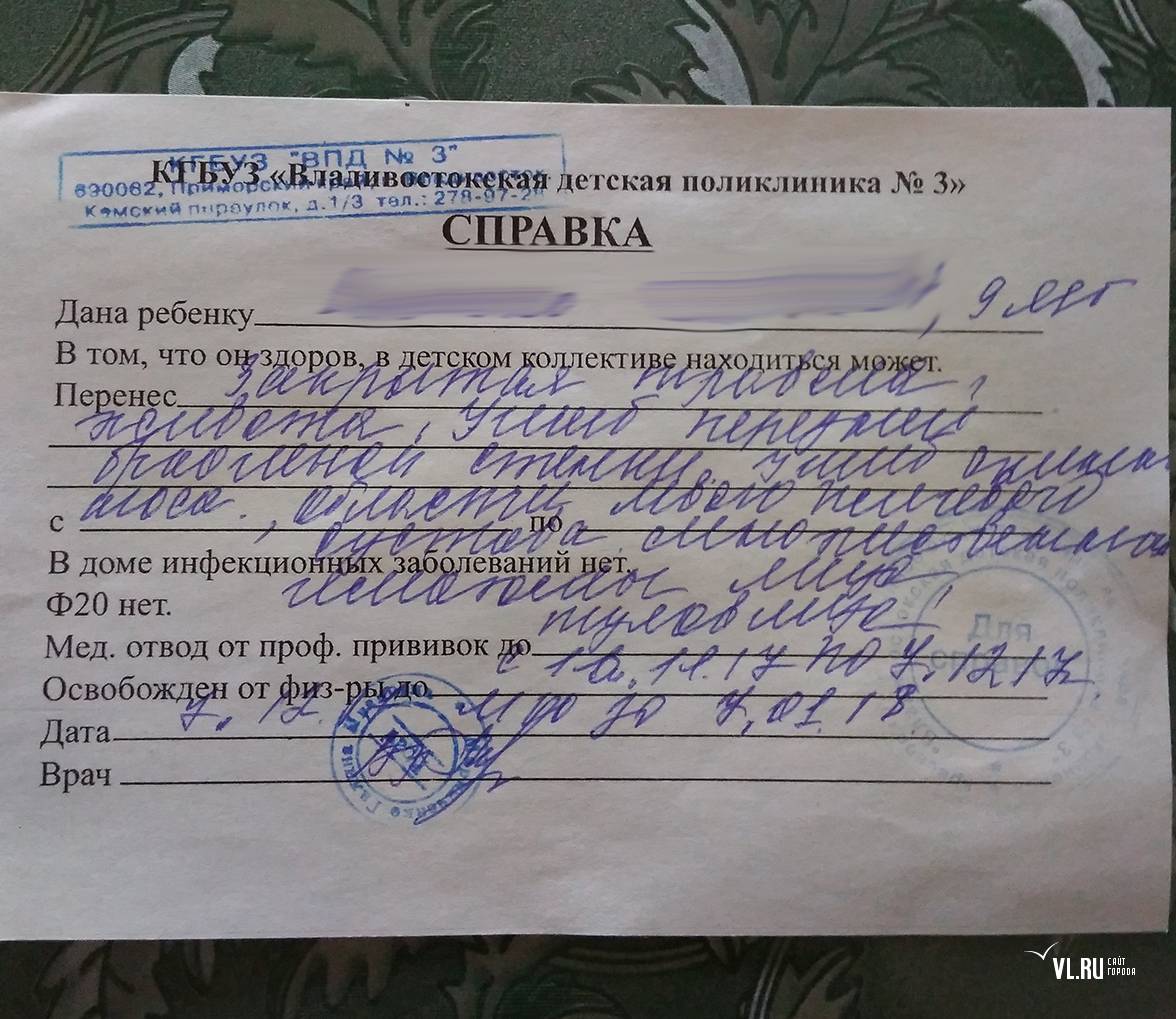 КГБУЗ "ВПД № 3"
690062, Приморский
Камский переулок, д.1/3 тел.: 278-97-2
КГБУЗ «Владивостокская детская поликлиника № 3»
СПРАВКА
Дана ребенку , 9 лет
В том, что он здоров, в детском коллективе находиться может.
Перенес Закрытая травма
живота, Ушиб передней
брюшной стенки. Ушиб
носа. , области левого плечевого
с по
сустава множественные
В доме инфекционных заболеваний нет.
гематомы лица
Ф20 нет.
туловища
Мед. отвод от проф. прививок до
с 10.11.17 по 7.12.17.
Освобожден от физ-ры до
7.12. до 7.01.18
Дата
Врач
Для
справок
VL.RU САЙТ ГОРОДА